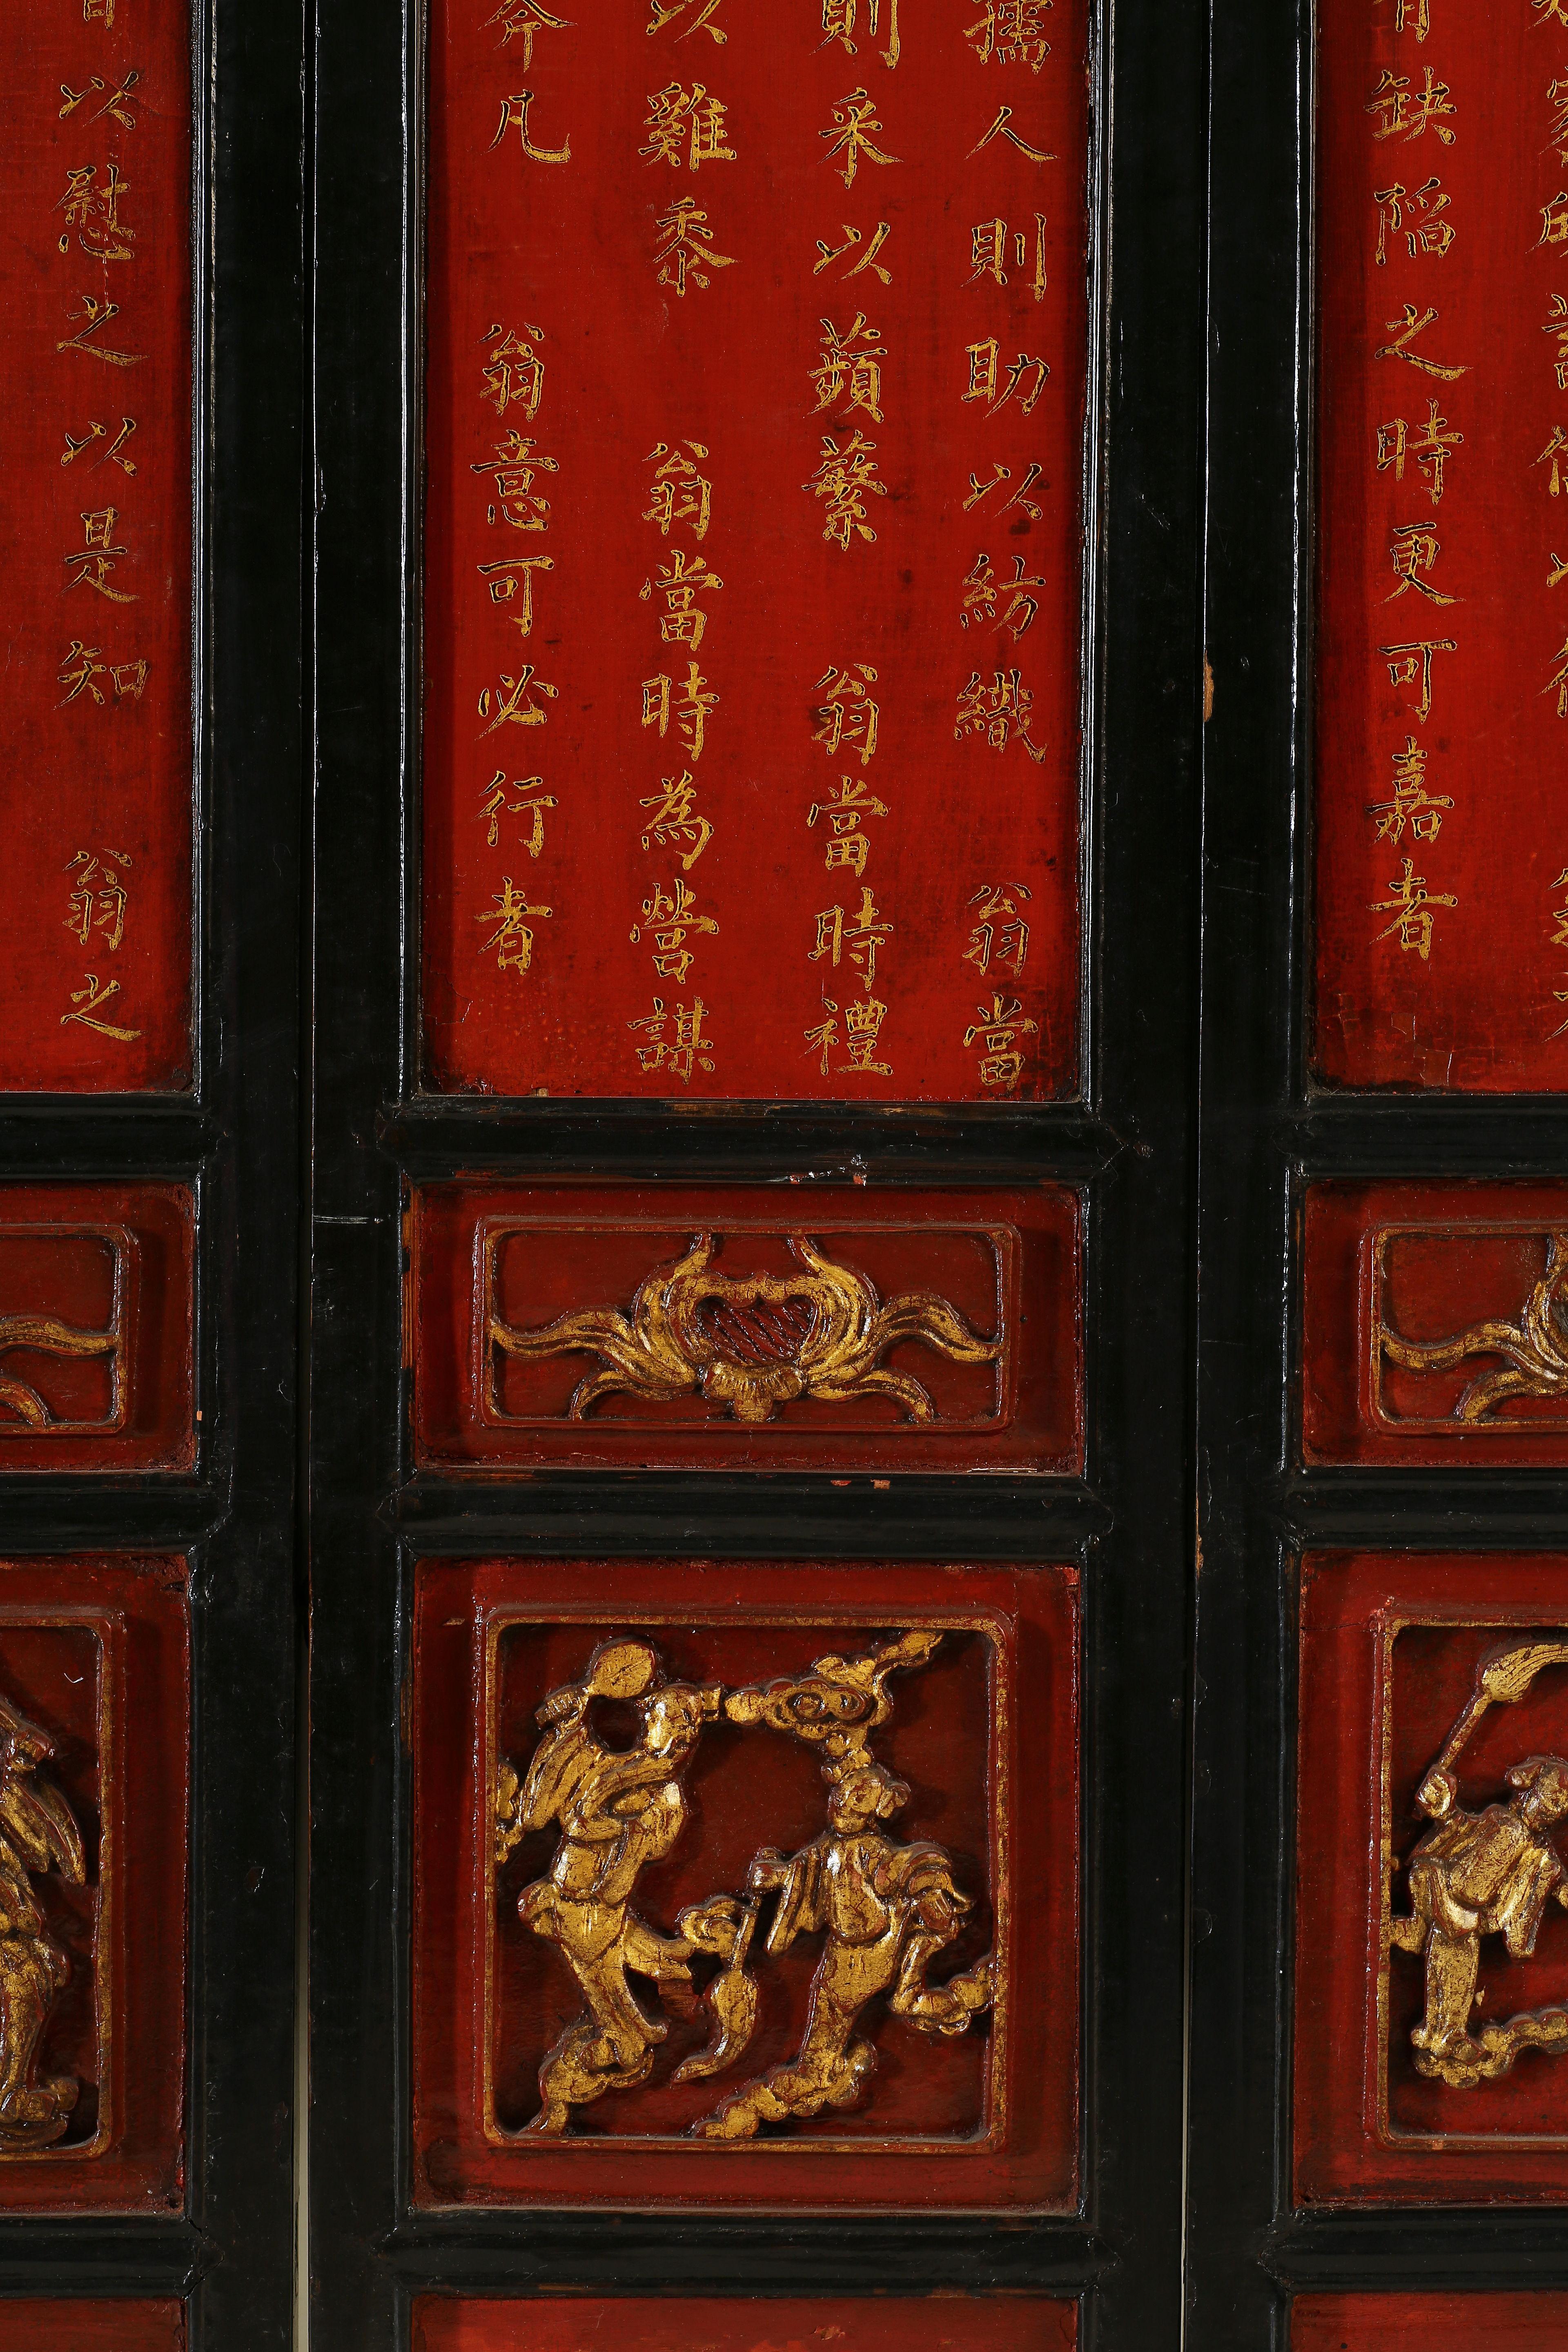 缺陷之時更可嘉者
孺人則助以紡織　翁當
則采以蘋蘩　翁當時禮
以雞黍　翁當時為營謀
今凡　翁意可必行者
以慰之以是知　翁之